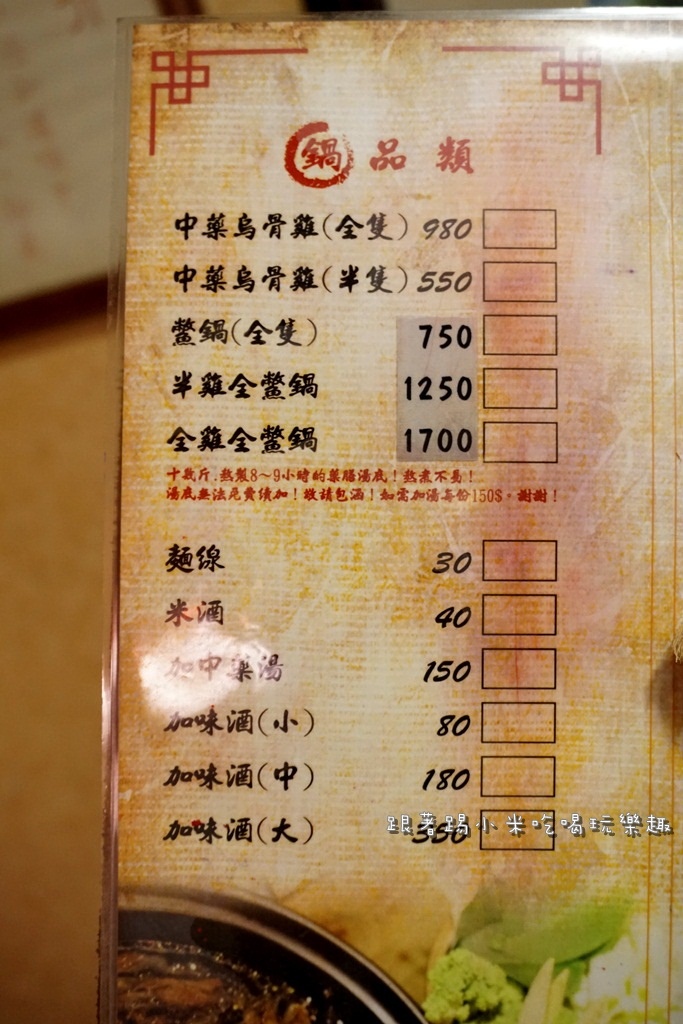 鍋品類
中藥烏骨雞(全隻) 980
中藥烏骨雞(半隻) 550
鱉鍋(全隻) 750
半雞全鱉鍋 1250
全雞全鱉鍋 1700
十幾斤.熬製8～9小時的藥膳湯底!熬煮不易!
湯底無法免費續加!敬請包涵!如需加湯每份150$。謝謝!
麵線 30
米酒 40
加中藥湯 150
加味酒(小) 80
加味酒(中) 180
加味酒(大)
跟著踢小米吃喝玩樂趣